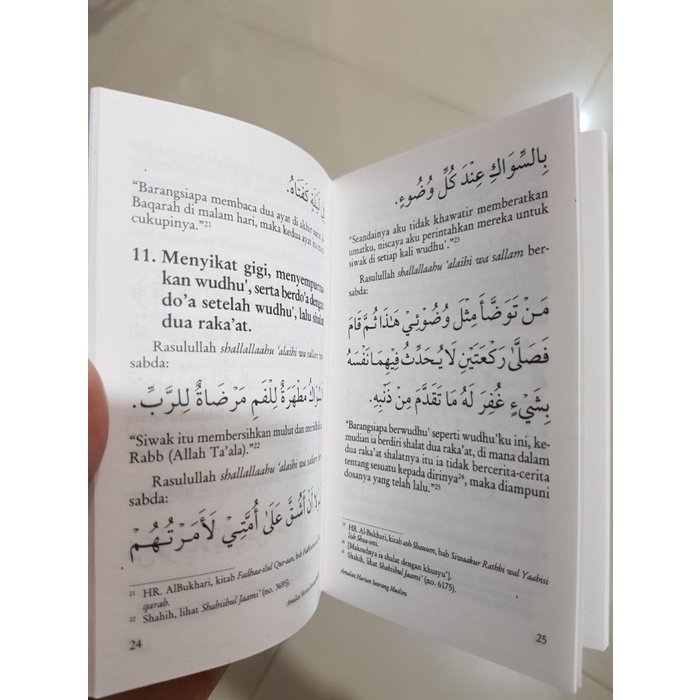 لَيْلَةٍ كَفَتَاهُ.
"Barangsiapa membaca dua ayat di akhir
Baqarah di malam hari, maka kedua ayat
cukupinya."21
11. Menyikat gigi, menyempurna-
kan wudhu', serta berdo'a dengan
do'a setelah wudhu', lalu shalat
dua raka'at.
Rasulullah shallallaahu 'alaihi wa sallam
sabda:
السِّوَاكُ مَطْهَرَةٌ لِلْفَمِ مَرْضَاةٌ لِلرَّبِّ.
"Siwak itu membersihkan mulut dan
Rabb (Allah Ta'ala)."22
Rasulullah shallallaahu 'alaihi wa sallam
sabda:
أَنْ أَشُقَّ عَلَى أُمَّتِيْ لَأَمَرْتُهُمْ
21 HR. AlBukhari, kitab Fadhaa-ilul Qur-aan, bab
qarah.
22 Shahih, lihat Shahiihul Jaami' (no. 3695).
Amalan Harian Seorang Muslim
24
بِالسِّوَاكِ عِنْدَ كُلِّ وُضُوْءٍ.
"Seandainya aku tidak khawatir memberatkan
umatku, niscaya aku perintahkan mereka untuk
siwak di setiap kali wudhu'."23
Rasulullah shallallaahu 'alaihi wa sallam ber-
sabda:
مَنْ تَوَضَّأَ مِثْلَ وُضُوْئِيْ هَذَا ثُمَّ قَامَ
فَصَلَّى رَكْعَتَيْنِ لَا يُحَدِّثُ فِيْهِمَا نَفْسَهُ
بِشَيْءٍ غُفِرَ لَهُ مَا تَقَدَّمَ مِنْ ذَنْبِهِ.
"Barangsiapa berwudhu' seperti wudhu'ku ini, ke-
mudian ia berdiri shalat dua raka'at, di mana dalam
dua raka'at shalatnya itu ia tidak bercerita-cerita
tentang sesuatu kepada dirinya24, maka diampuni
dosanya yang telah lalu."25
23 HR. Al-Bukhari, kitab ash-Shauum, bab Siwaakur Rathbi wal Yaabisi
lish Shaa-imi.
24 [Maksudnya ia shalat dengan khusyu'].
25 Shahih, lihat Shahiihul Jaami' (no. 6175).
Amalan Harian Seorang Muslim
25